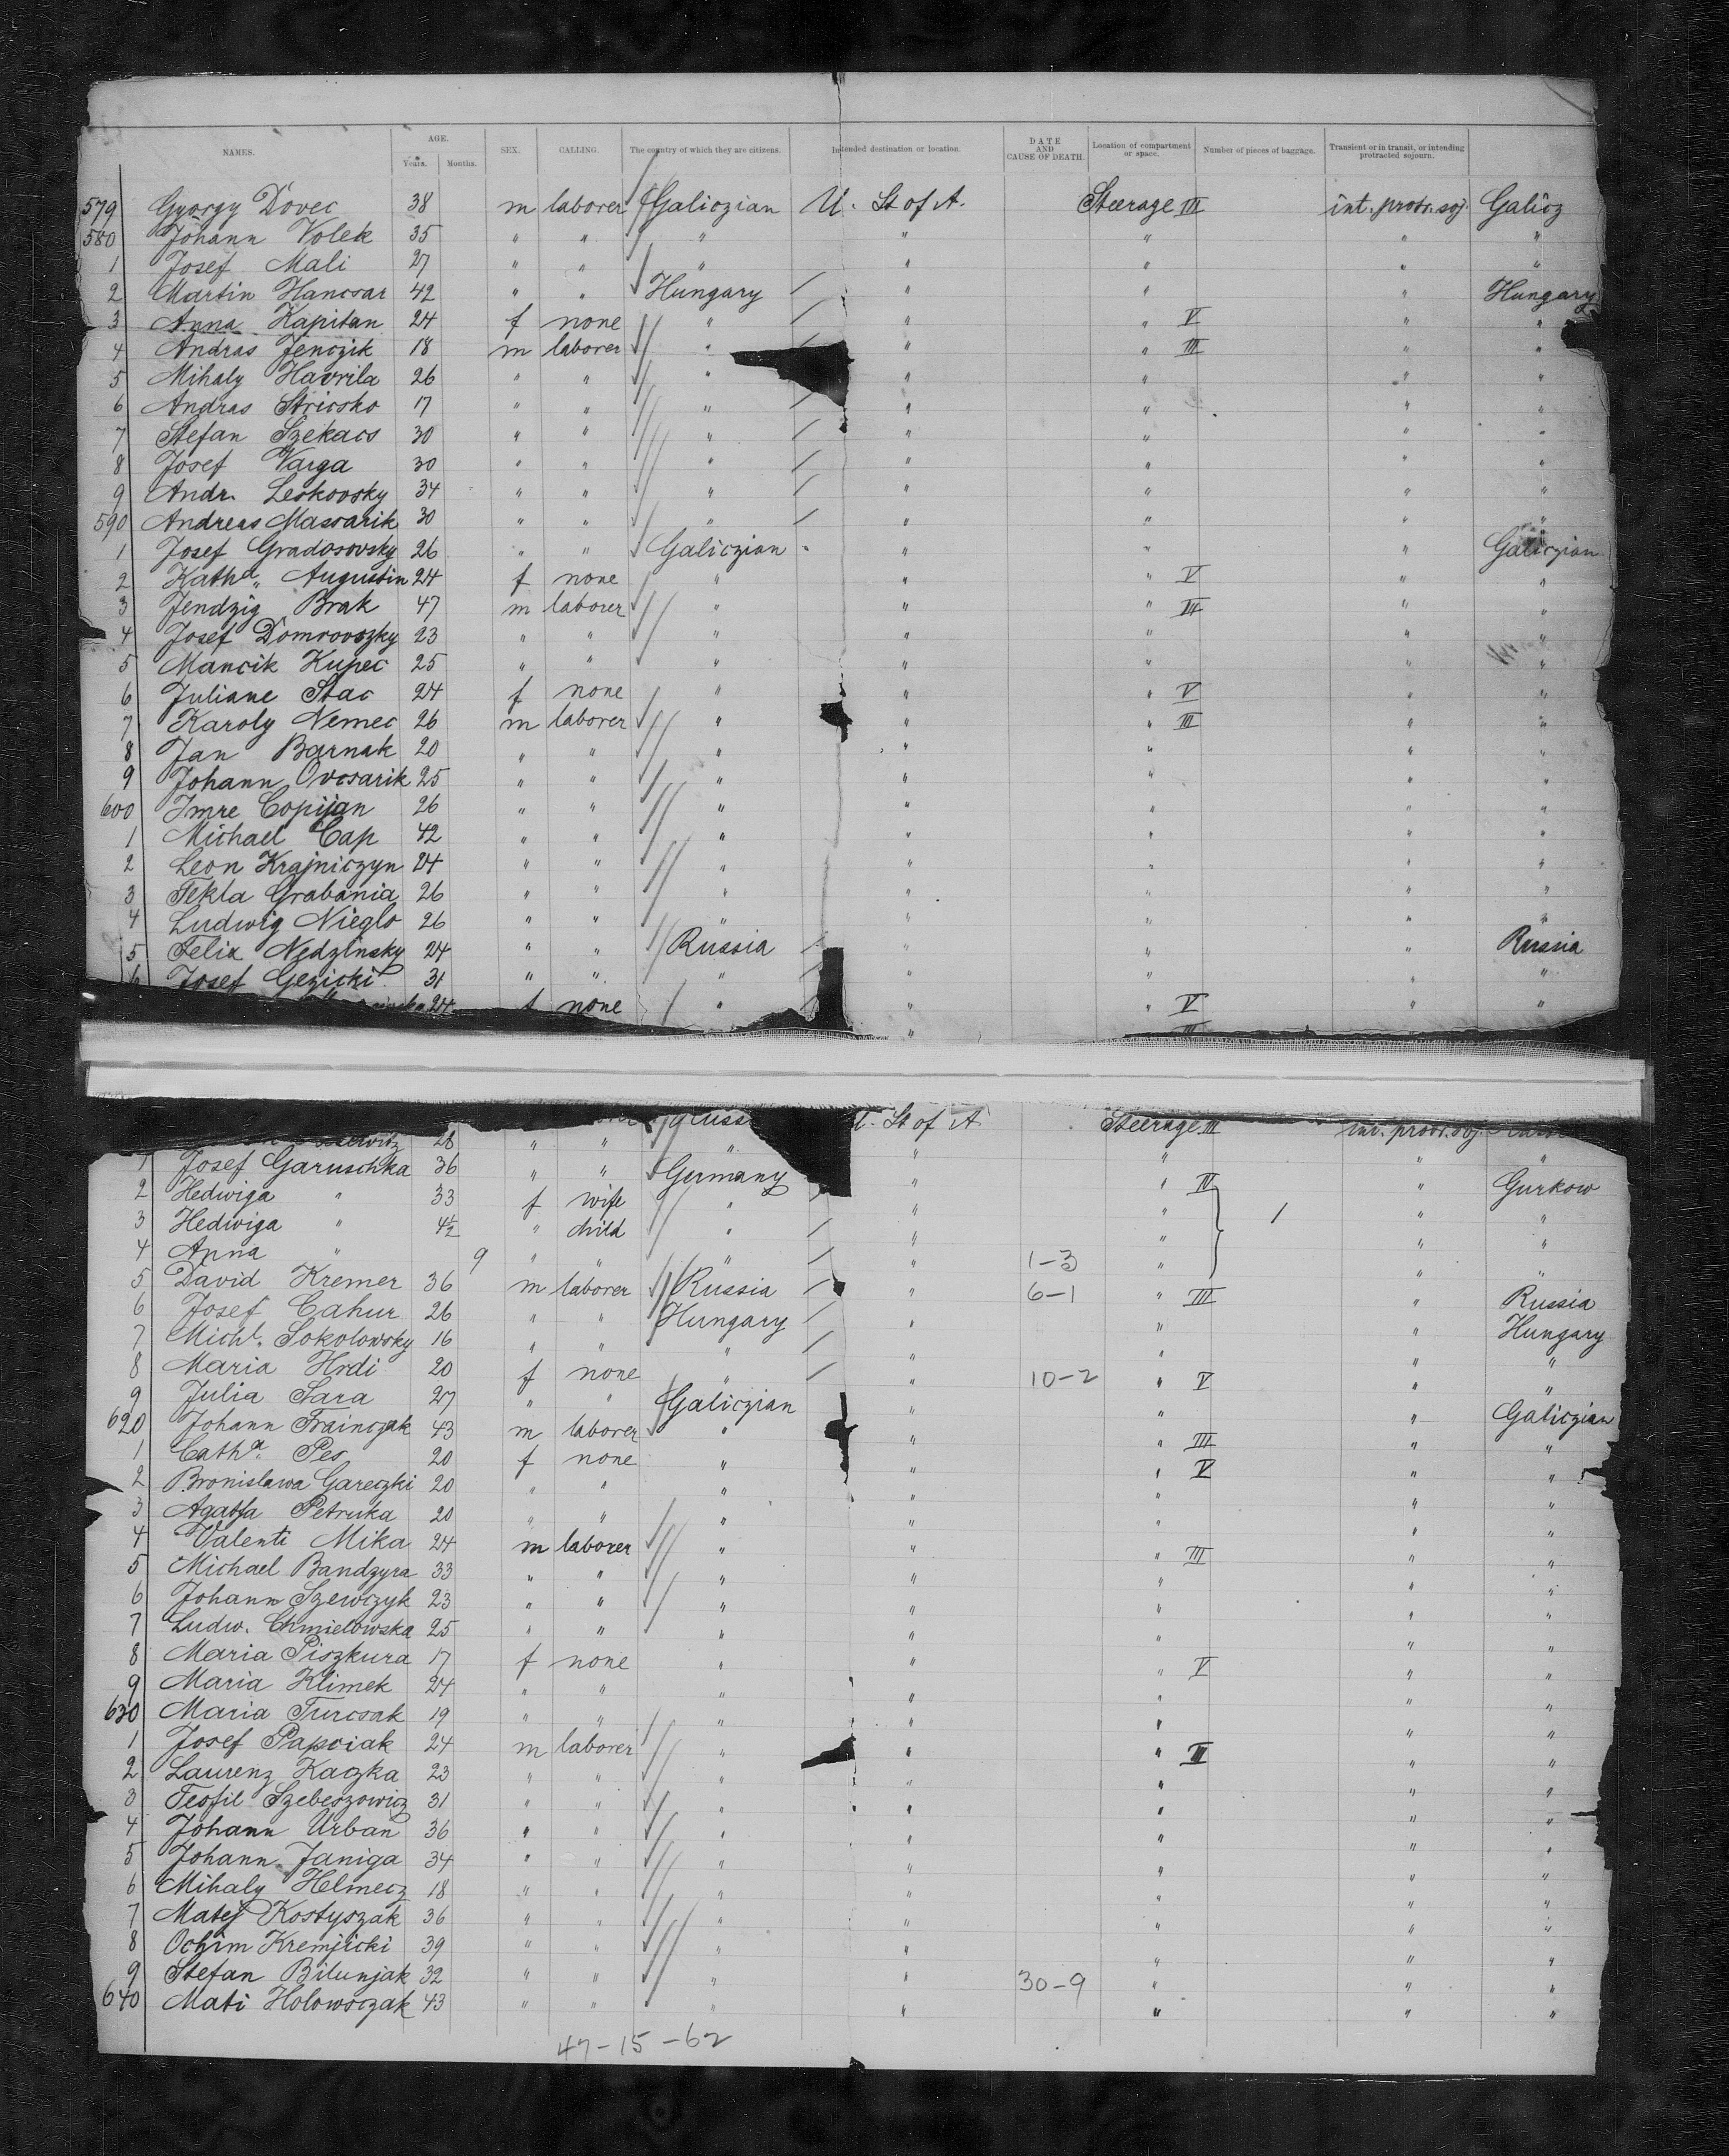 NAMES. AGE. Years. Months. SEX. CALLING. The country of which they are citizens. Intended destination or location. DATE AND CAUSE OF DEATH. Location of compartment or space. Number of pieces of baggage. Transient or in transit, or intending protracted sojourn.
579 Gyorgy Dovec 38 m laborer Galiczian U. St of A. Steerage III int. protr. soj. Galicz
580 Johann Volek 35 " " " " " " "
1 Josef Mali 27 " " " " " " "
2 Martin Hancsar 42 " " Hungary " " " Hungary
3 Anna Kapitan 24 f none " " " V " "
4 Andras Jenczik 18 m laborer " " " III " "
5 Mihaly Havrila 26 " " " " " " "
6 Andras Stricsko 17 " " " " " " "
7 Stefan Szekacs 30 " " " " " " "
8 Josef Varga 30 " " " " " " "
9 Andr. Leskovsky 34 " " " " " " "
590 Andreas Massarik 30 " " " " " " "
1 Josef Gradosovsky 26 " " Galiczian " " " Galiczian
2 Katha. Augustin 24 f none " " " V " "
3 Jendzig Brak 47 m laborer " " " III " "
4 Josef Domrovszky 23 " " " " " " "
5 Mancik Kupec 25 " " " " " " "
6 Juliane Stac 24 f none " " " V " "
7 Karoly Nemec 26 m laborer " " " III " "
8 Jan Barnak 20 " " " " " " "
9 Johann Ovcsarik 25 " " " " " " "
600 Imre Copijan 26 " " " " " " "
1 Michael Cap 42 " " " " " " "
2 Leon Krajniczyn 24 " " " " " " "
3 Tekla Grabania 26 " " " " " " "
4 Ludwig Nieglo 26 " " " " " " "
5 Felix Nedzlnsky 24 " " Russia " " " Russia
6 Josef Gezicki 31 " " " " " " "
24 f none " " " V " "
" III
St of A Steerage III int. protr. soj.
28 " " " " " " "
1 Josef Garuschka 36 " " Germany " " IV " Gurkow
2 Hedwiga " 33 f wife " " " 1 " "
3 Hedwiga " 4½ " child " " " " "
4 Anna " 9 " " " " 1-3 " " "
5 David Kremer 36 m laborer Russia " 6-1 " III " Russia
6 Josef Cahur 26 " " Hungary " " " Hungary
7 Michl. Sokolowsky 16 " " " " " " "
8 Maria Hrdi 20 f none " " 10-2 " V " "
9 Julia Sara 27 " " Galiczian " " " Galiczian
620 Johann Frainczak 43 m laborer " " " III " "
1 Catha. Pes 20 f none " " " V " "
2 Bronislawa Gareczki 20 " " " " " " "
3 Agatfa Petruka 20 " " " " " " "
4 Valenti Mika 24 m laborer " " " III " "
5 Michael Bandzyra 33 " " " " " " "
6 Johann Szewczyk 23 " " " " " " "
7 Ludw. Chmielowska 25 " " " " " " "
8 Maria Piszkura 17 f none " " " V " "
9 Maria Klimek 24 " " " " " " "
630 Maria Turcsak 19 " " " " " " "
1 Josef Papciak 24 m laborer " " " III " "
2 Laurenz Kaczka 23 " " " " " " "
3 Teofil Szebeszowicz 31 " " " " " " "
4 Johann Urban 36 " " " " " " "
5 Johann Janiga 34 " " " " " " "
6 Mihaly Helmecz 18 " " " " " " "
7 Matej Kostyszak 36 " " " " " " "
8 Ochim Kremjicki 39 " " " " " " "
9 Stefan Bilunjak 32 " " " " 30-9 " " "
640 Mati Holowsczak 43 " " " " " " "
47-15-62